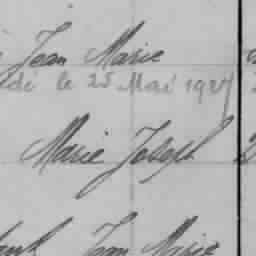 Jean Marie
dé le 25 Mai 1927
Marie Joseph
Jean Marie